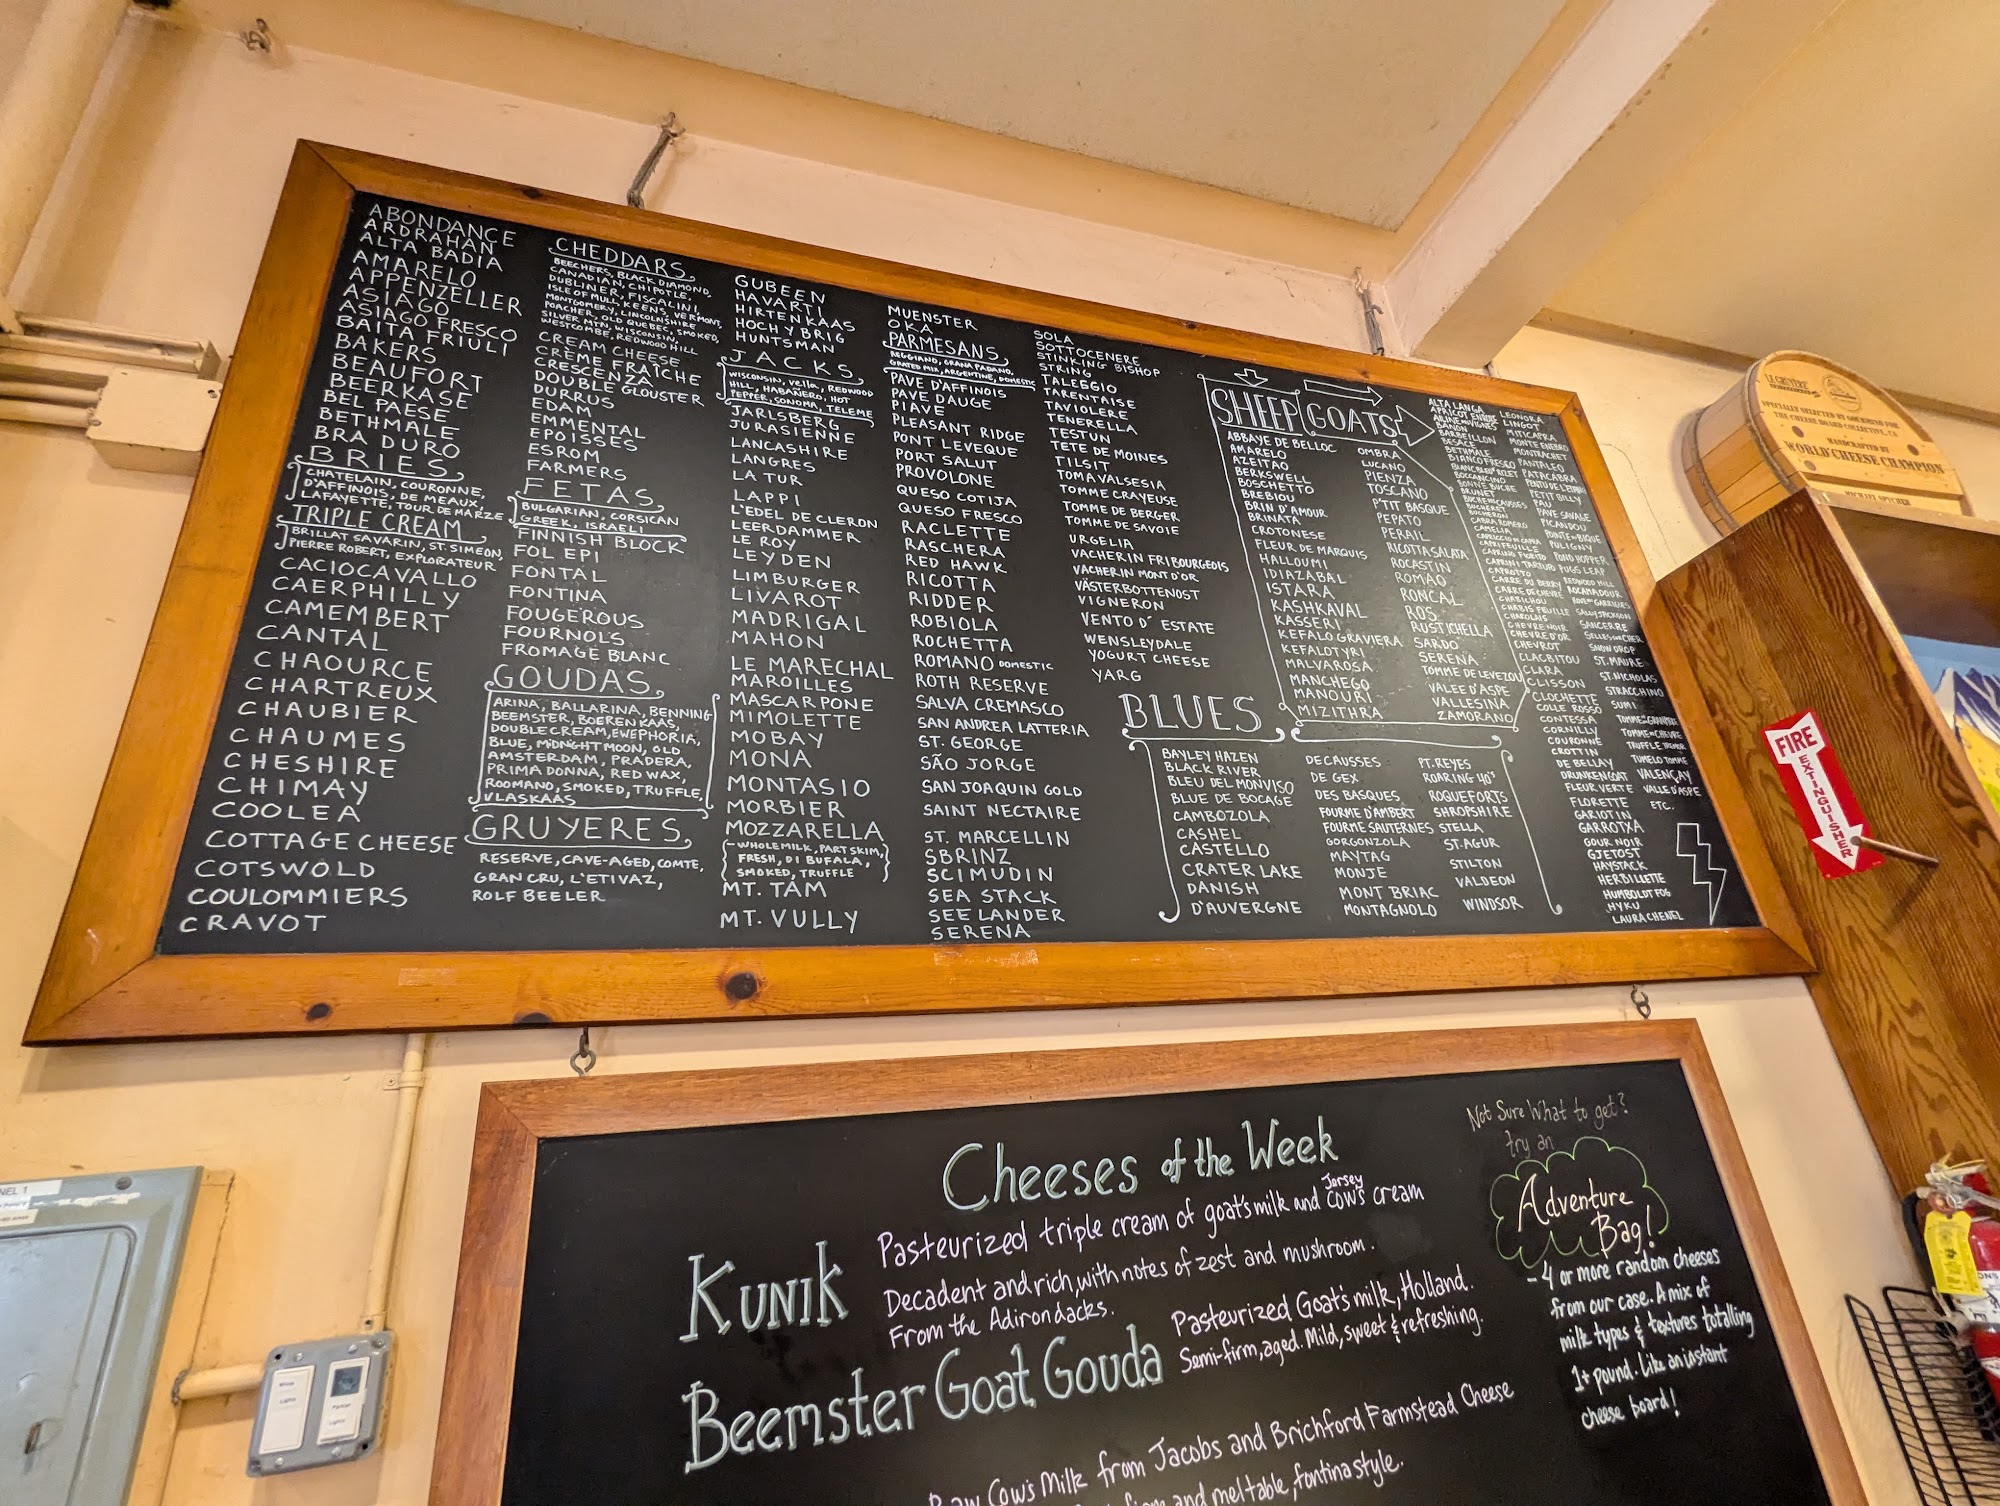 ABONDANCE
ARDRAHAN
ALTA BADIA
AMARELO
APPENZELLER
ASIAGO
ASIAGO FRESCO
BAITA FRIULI
BAKERS
BEAUFORT
BEERKASE
BEL PAESE
BETHMALE
BRA DURO
BRIES
CHATELAIN, COURONNE,
D'AFFINOIS, DE MEAUX,
LAFAYETTE, TOUR DE MARZE
TRIPLE CREAM
BRILLAT SAVARIN, ST. SIMEON,
PIERRE ROBERT, EXPLORATEUR
CACIOCAVALLO
CAERPHILLY
CAMEMBERT
CANTAL
CHAOURCE
CHARTREUX
CHAUBIER
CHAUMES
CHESHIRE
CHIMAY
COOLEA
COTTAGE CHEESE
COTSWOLD
COULOMMIERS
CRAVOT
CHEDDARS
BEECHERS, BLACK DIAMOND,
CANADIAN, CHIPOTLE,
DUBLINER, FISCALINI,
ISLE OF MULL, KEENS, VERMONT,
MONTGOMERY, LINCOLNSHIRE
POACHER, OLD QUEBEC, SMOKED,
SILVER MTN, WISCONSIN,
WESTCOMBE, REDWOOD HILL
CREAM CHEESE
CRÈME FRAÎCHE
CRESCENZA
DOUBLE GLOUSTER
DURRUS
EDAM
EMMENTAL
EPOISSES
ESROM
FARMERS
FETAS
BULGARIAN, CORSICAN
GREEK, ISRAELI
FINNISH BLOCK
FOL EPI
FONTAL
FONTINA
FOUGEROUS
FOURNOLS
FROMAGE BLANC
GOUDAS
ARINA, BALLARINA, BENNING
BEEMSTER, BOERENKAAS,
DOUBLE CREAM, EWEPHORIA,
BLUE, MIDNIGHT MOON, OLD
AMSTERDAM, PRADERA,
PRIMA DONNA, RED WAX,
ROOMANO, SMOKED, TRUFFLE,
VLASKAAS
GRUYERES
RESERVE, CAVE-AGED, COMTE,
GRAN CRU, L'ETIVAZ,
ROLF BEELER
GUBEEN
HAVARTI
HIRTENKAAS
HOCH Y BRIG
HUNTSMAN
JACKS
WISCONSIN, VELLA, REDWOOD
HILL, HABAÑERO, HOT
PEPPER, SONOMA, TELEME
JARLSBERG
JURASIENNE
LANCASHIRE
LANGRES
LA TUR
LAPPI
L'EDEL DE CLERON
LEERDAMMER
LE ROY
LEYDEN
LIMBURGER
LIVAROT
MADRIGAL
MAHON
LE MARECHAL
MAROILLES
MASCARPONE
MIMOLETTE
MOBAY
MONA
MONTASIO
MORBIER
MOZZARELLA
WHOLE MILK, PART SKIM,
FRESH, DI BUFALA,
SMOKED, TRUFFLE
MT. TAM
MT. VULLY
MUENSTER
OKA
PARMESANS
REGGIANO, GRANA PADANO,
GRATED MIX, ARGENTINE, DOMESTIC
PAVE D'AFFINOIS
PAVE DAUGE
PIAVE
PLEASANT RIDGE
PONT LEVEQUE
PORT SALUT
PROVOLONE
QUESO COTIJA
QUESO FRESCO
RACLETTE
RASCHERA
RED HAWK
RICOTTA
RIDDER
ROBIOLA
ROCHETTA
ROMANO DOMESTIC
ROTH RESERVE
SALVA CREMASCO
SAN ANDREA LATTERIA
ST. GEORGE
SÃO JORGE
SAN JOAQUIN GOLD
SAINT NECTAIRE
ST. MARCELLIN
SBRINZ
SCIMUDIN
SEA STACK
SEELANDER
SERENA
SOLA
SOTTOCENERE
STINKING BISHOP
STRING
TALEGGIO
TARENTAISE
TAVIOLERE
TENERELLA
TESTUN
TETE DE MOINES
TILSIT
TOMA VALSESIA
TOMME CRAYEUSE
TOMME DE BERGER
TOMME DE SAVOIE
URGELIA
VACHERIN FRIBOURGEOIS
VACHERIN MONT D'OR
VÄSTERBOTTENOST
VIGNERON
VENTO D'ESTATE
WENSLEYDALE
YOGURT CHEESE
YARG
BLUES
BAYLEY HAZEN
BLACK RIVER
BLEU DEL MONVISO
BLUE DE BOCAGE
CAMBOZOLA
CASHEL
CASTELLO
CRATER LAKE
DANISH
D'AUVERGNE
DECAUSSES
DE GEX
DES BASQUES
FOURME D'AMBERT
FOURME SAUTERNES
GORGONZOLA
MAYTAG
MONJE
MONT BRIAC
MONTAGNOLO
PT. REYES
ROARING 40'S
ROQUEFORTS
SHROPSHIRE
STELLA
ST. AGUR
STILTON
VALDEON
WINDSOR
SHEEP
ABBAYE DE BELLOC
AMARELO
AZEITAO
BERKSWELL
BOSCHETTO
BREBIOU
BRIN D'AMOUR
BRINATA
CROTONESE
FLEUR DE MARQUIS
HALLOUMI
IDIAZABAL
ISTARA
KASHKAVAL
KASSERI
KEFALO GRAVIERA
KEFALOTYRI
MALVAROSA
MANCHEGO
MANOURI
MIZITHRA
OMBRA
LUCANO
PIENZA
TOSCANO
P'TIT BASQUE
PEPATO
PERAIL
RICOTTA SALATA
ROCASTIN
ROMAO
RONCAL
ROS
RUSTICHELLA
SARDO
SERENA
TOMME DE LEVEZOU
VALEE D'ASPE
VALLESINA
ZAMORANO
GOATS
ALTA LANGA
BANON
BARBEILLON
BESACE
BETHMALE
BIANCO FRESCO
BOCCANCINO
BONNE BUCHE
BRUNET
BUCHERON
CABRA ROMERO
CAMELIA
CAPRIFEUILLE
CAPROTTO
CARRE DU BERRY
CARRE DE CHEVRE
CHABICHOU
CHABIS FEUILLE
CHAROLAIS
CHEVRE NOIR
CHEVRE D'OR
CHEVROT
CLACBITOU
CLARA
CLISSON
CLOCHETTE
COLLE ROSSO
CONTESSA
CORNILLY
COURONNE
CROTTIN
DE BELLAY
DRUNKEN GOAT
FLEUR VERTE
FLORETTE
GARIOTIN
GARROTXA
GOUR NOIR
GJETOST
HAYSTACK
HERBILLETTE
HUMBOLDT FOG
HYKU
LAURA CHENEL
LEONORA
LINGOT
MITICAPRA
MONTE ENEBRO
MONTRACHET
PANTALEO
PATACABRA
PETIT BILLY
PAU
PAVE SAUVAGE
PICANDOU
POINTE DE BIQUE
PULIGNY
POND HOPPER
PUGS LEAP
REDWOOD HILL
ROCAMADOUR
SALLY JACKSON
SANCERRE
SELLES SUR CHER
SNOW DROP
ST. MAURE
ST. NICHOLAS
STRACCHINO
SUMI
TOMME DE CHEVRE
TRUFFLE TREMOR
TUMELO TOMME
VALENÇAY
VALLE D'ASPE
ETC.
LE GRUYÈRE
SPECIALLY SELECTED BY GOURMINO FOR
THE CHEESE BOARD COLLECTIVE, CA
HANDCRAFTED BY
WORLD CHEESE CHAMPION
MICHAEL SPYCHER
FIRE
EXTINGUISHER
Cheeses of the Week
Kunik
Pasteurized triple cream of goat's milk and Jersey cow's cream
Decadent and rich, with notes of zest and mushroom.
From the Adirondacks.
Beemster Goat Gouda
Pasteurized Goat's milk, Holland.
Semi-firm, aged. Mild, sweet & refreshing.
Raw Cow's Milk from Jacobs and Brichford Farmstead Cheese
firm and meltable, fontina style.
Not Sure What to get?
try an
Adventure
Bag!
- 4 or more random cheeses
from our case. A mix of
milk types & textures totalling
1+ pound. Like an instant
cheese board!